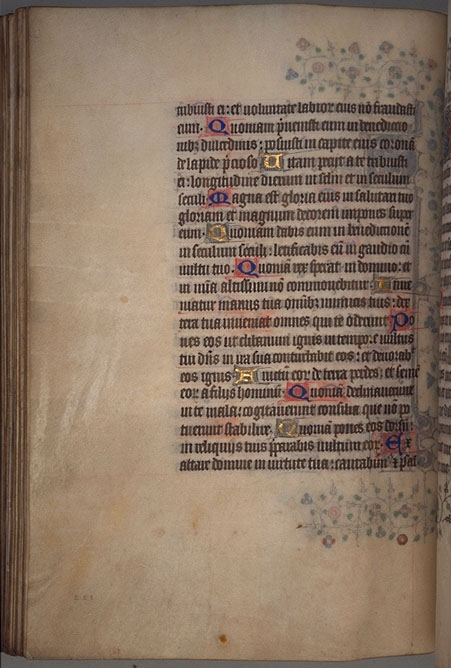 tribuisti ei: et voluntate labior eius nō fraudasti
eum. Quoniam p̄uenisti eum in benedictio
nibꝫ dulcedinis: posuisti in capite eius coronā
de lapide p̄cioso Uitam peciit a te tribuisti
ei: longitudine dierum in sc̄lm et in seculum
seculi. Magna est gloria eius in salutari tuo
gloriam et magnum decorem impones super
eum. Quoniam dabis eum in benedictionē
in seculum seculi: letificabis eū in gaudio cū
vultu tuo. Quoniā rex sperat in domino: et
in mīa altissimi nō commouebitur. Inue
niatur manus tua omībꝫ inimicis tuis: dex
tera tua inueniat omnes qui te oderunt Po
nes eos ut clibanum ignis in tempore vultus
tui dn̄s in ira sua conturbabit eos: et deuorabꝫ
eos ignis Fructum eor de terra perdes: et semē
eor a filijs hominū. Quoniā declinauerunt
in te mala: cogitauerunt consilia que nō po
tuerunt stabilire. Quoniā pones eos dorsū:
in reliquijs tuis p̄parabis vultum eor. Ex
altare domine in virtute tua: cantabim⁹ ⁊ psal